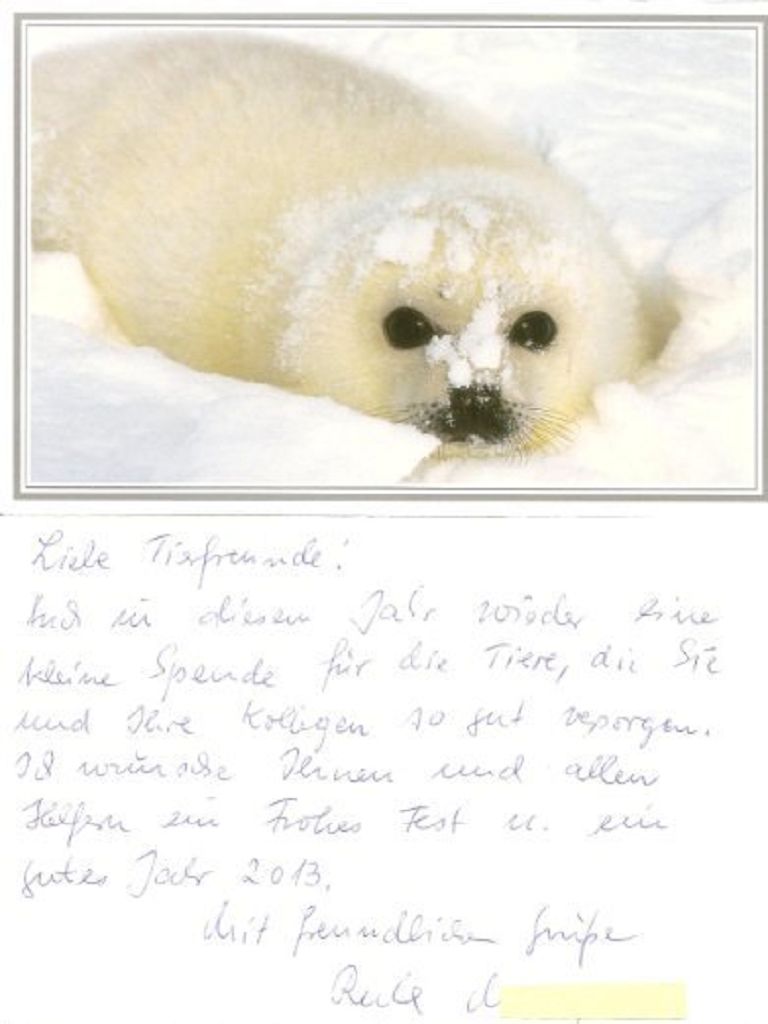 Liebe Tierfreunde!
Auch in diesem Jahr wieder eine
kleine Spende für die Tiere, die Sie
und Ihre Kollegen so gut versorgen.
Ich wünsche Ihnen und allen
Helfern ein Frohes Fest u. ein
gutes Jahr 2013.
Mit freundlichen Grüßen